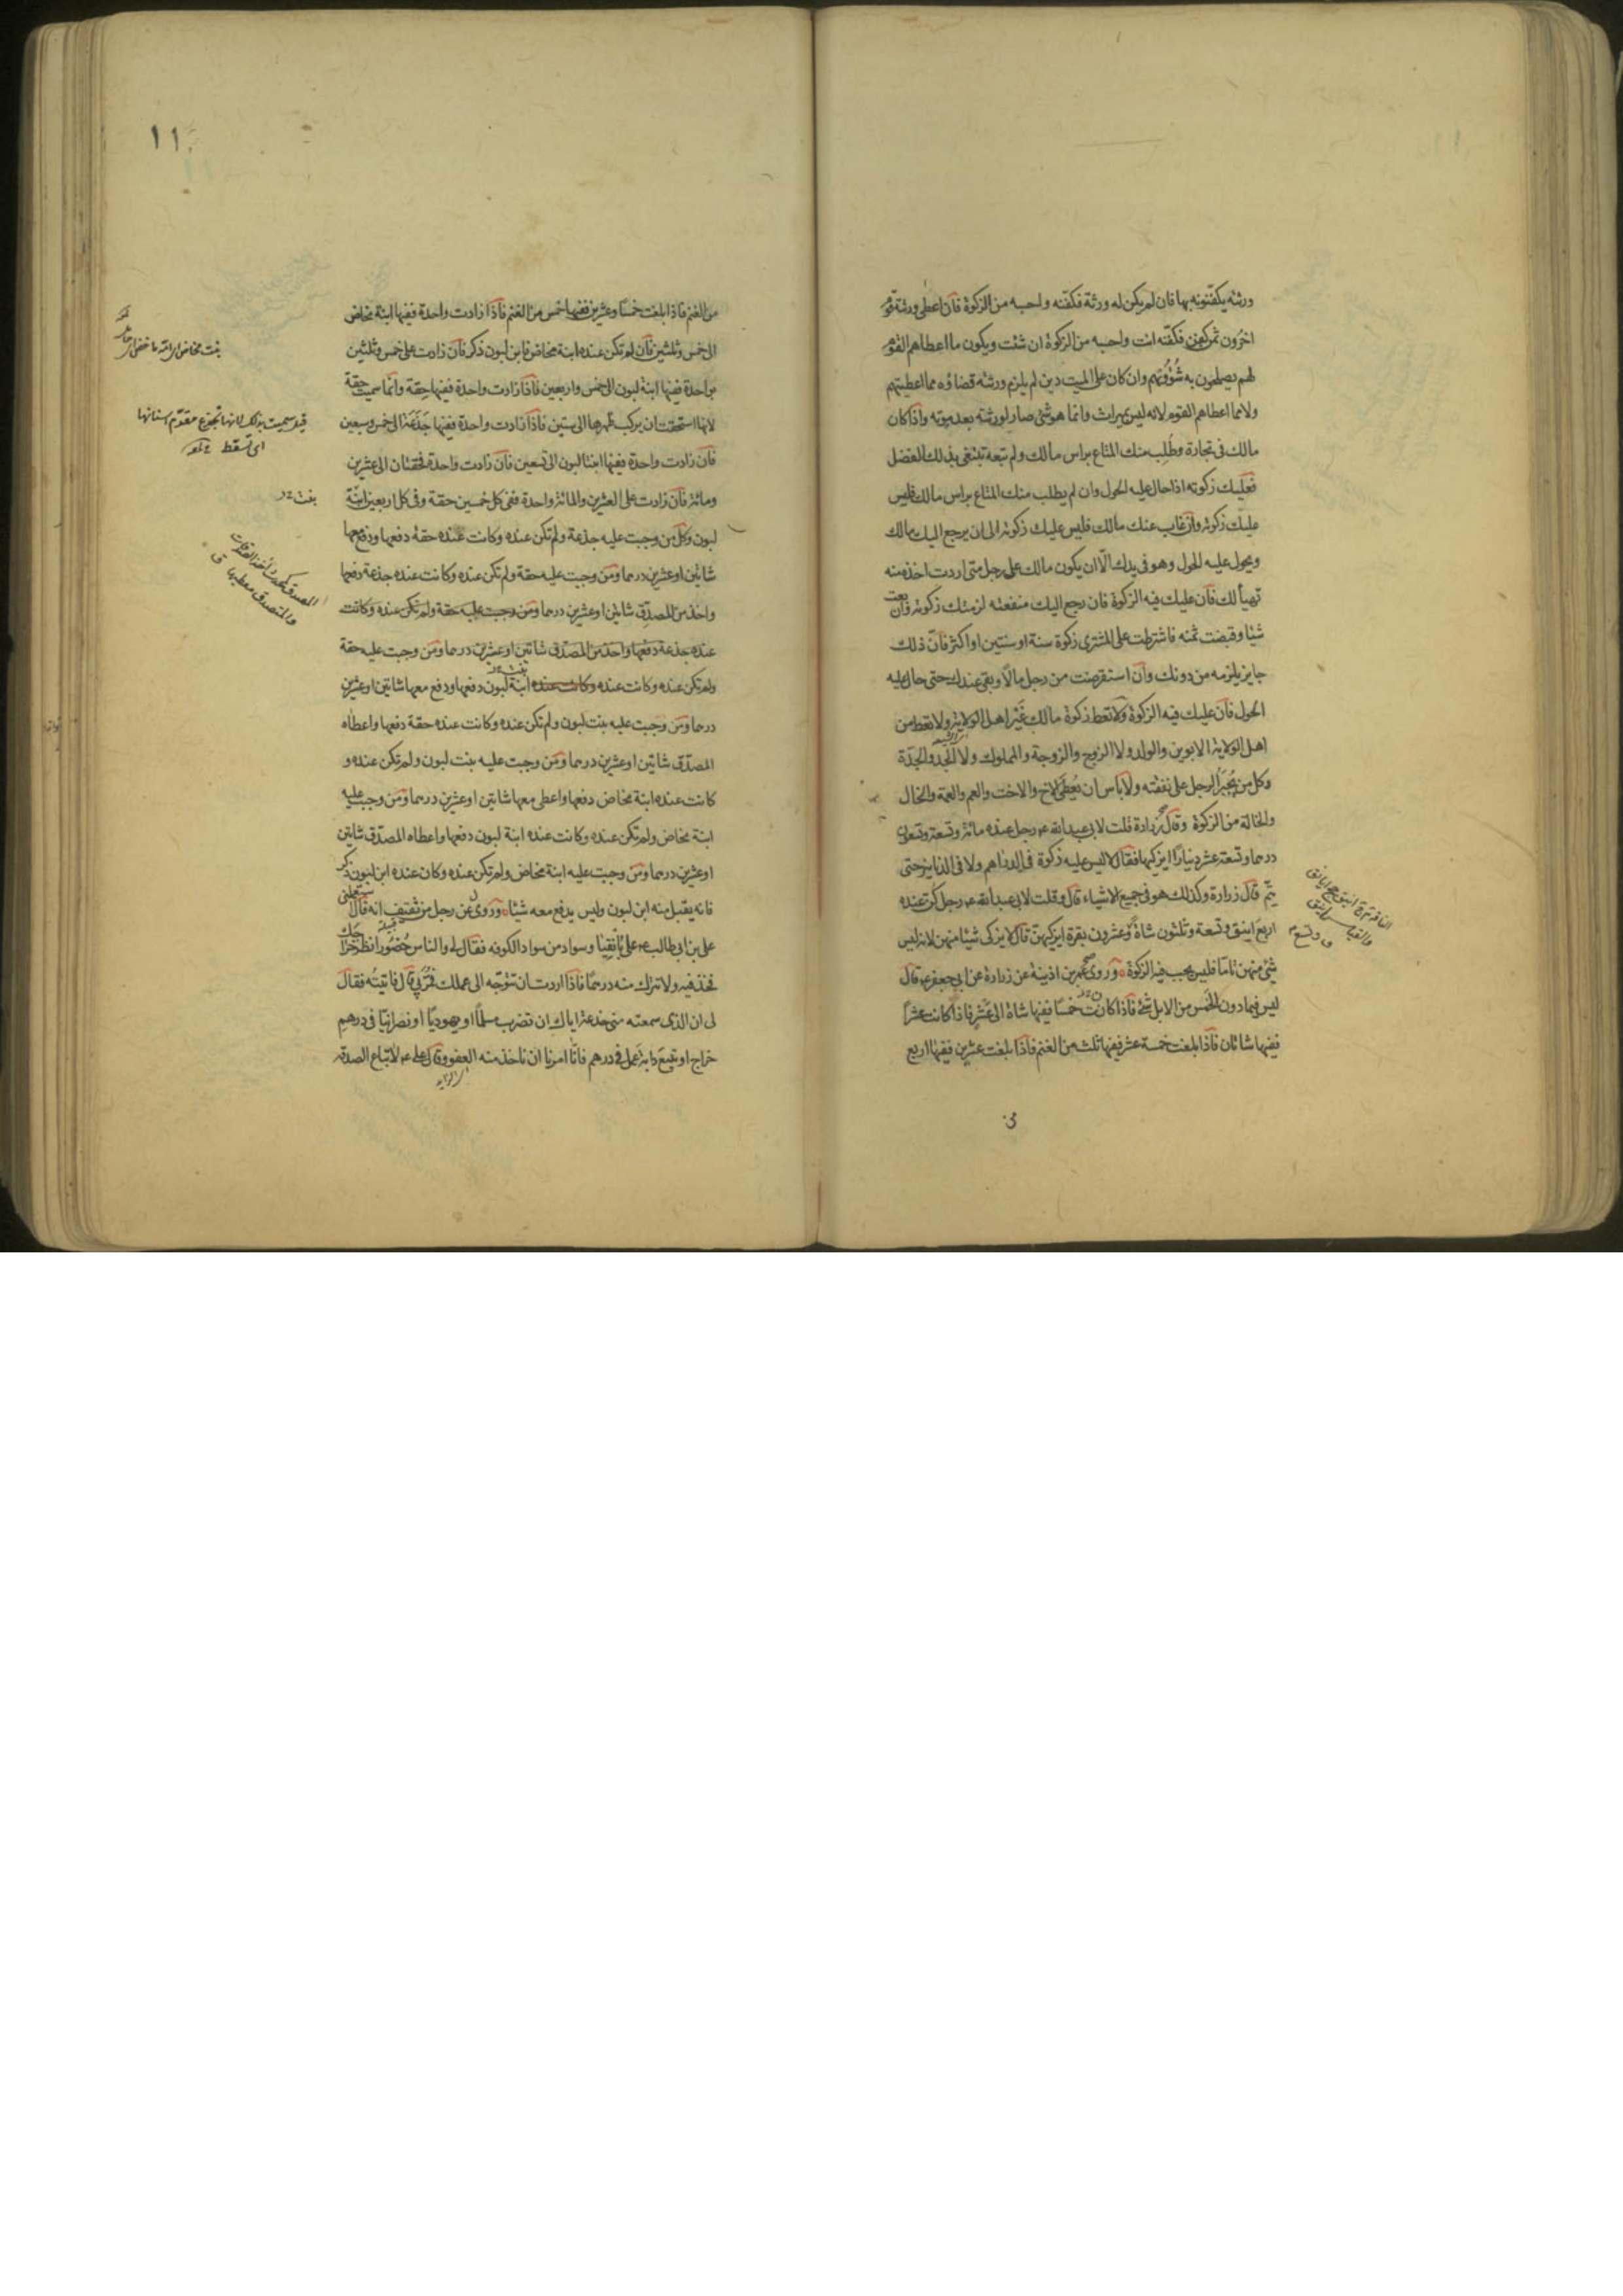 ورثته يكفّنونه بها فان لم يكن له ورثة فكفّنه واحسبه من الزكوة فان اعطى ورثته قوم
اخرون ثمن كفن فكفّنه انت واحسبه من الزكوة ان شئت ويكون ما اعطاهم القوم
لهم يصلحون به شؤونهم وان كان على الميت دين لم يلزم ورثته قضاؤه مما اعطيتهم
ولا مما اعطاهم القوم لانه ليس بميراث وانما هو شئ صار لورثته بعد موته واذا كان
مالك فى تجارة وطُلِب منك المتاع براس مالك ولم تبعه تبتغى بذلك الفضل
فعليك زكوته اذا حال عليه الحول وان لم يطلب منك المتاع براس مالك فليس
عليك زكوته وان غاب عنك مالك فليس عليك زكوته الى ان يرجع اليك مالك
ويحول عليه الحول وهو فى يدك الّا ان يكون مالك على رجل متى اردت اخذه منه
تهيأ لك فان عليك فيه الزكوة فان رجع اليك منفعته لزمتك زكوته وان بعت
شيئا وقبضت ثمنه فاشترطت على المشترى زكوة سنة او سنتين او اكثر فانّ ذلك
جايز يلزمه من دونك وان استقرضت من رجل مالًا وبقى عندك حتى حال عليه
الحول فان عليك فيه الزكوة ولا تعط زكوة مالك غَيْر اهل الولاية ولا تعط من
اهل الولاية الابوين والولد ولا الزوج والزوجة والمملوك ولا الجد والجدّة
وكل من يُجْبَرُ الرجل على نفقته ولا باس ان يُعْطَى الاخ والاخت والعم والعمة والخال
والخالة من الزكوة وقال زرارة قلت لابى عبد الله ع رجل عنده مائة وتسعة وتسعون
درهما وتسعة عشر دينارًا ايزكيها فقال لا ليس عليه زكوة فى الدراهم ولا فى الدنانير حتى
يتّم قال زرارة وكذلك هو فى جميع الاشياء قال وقلت لابى عبد الله ع رجل كنّ عنده
اربع اينق وتسعة وثلثون شاةً وعشرون بقرة ايزكيهنّ قال لا يزكى شيئا منهن لانه ليس
شئ منهن تامّا فليس يجب فيه الزكوة وروى عمر بن اذينة عن زرارة عن ابى جعفر ع قال
ليس فيما دون الخَمس من الابل شئ فاذا كانت خمسًا ففيها شاة الى عَشْر فاذا كانت عشرًا
ففيها شاتان فاذا بلغت خمسة عشر ففيها ثلث من الغنم فاذا بلغت عشرين ففيها اربع
من
١١
من الغنم فاذا بلغت خمسًا وعشرين ففيها خمس من الغنم فاذا زادت واحدة ففيها ابنة مخاض
الى خمس وثلثين فان لم تكن عنده ابنة مخاض فابن لبون ذكر فان زادت على خمس وثلثين
بواحدة ففيها ابنة لبون الى خمس واربعين فاذا زادت واحدة ففيها حِقة وانما سميت حقة
لانها استحقت ان يركب ظهرها الى ستين فاذا زادت واحدة ففيها جَذَعَة الى خمس وسبعين
فان زادت واحدة ففيها ابنتا لبون الى تسعين فان زادت واحدة فحقتان الى عشرين
ومائة فان زادت على العشرين والمائة واحدة ففى كل خمسين حقة وفى كل اربعين ابنة
لبون وكل من وجبت عليه جذعة ولم تكن عنده وكانت عنده حقة دفعها ودفع معها
شاتين او عشرين درهما ومن وجبت عليه حقة ولم تكن عنده وكانت عنده جذعة دفعها
واخذ من المصدّق شاتين او عشرين درهما ومن وجبت عليه حقة ولم تكن عنده وكانت
عنده جذعة دفعها واخذ من المصدّق شاتين او عشرين درهما ومن وجبت عليه حقة
ولم تكن عنده وكانت عنده وكانت عنده ابنة لبون دفعها ودفع معها شاتين او عشرين
درهما ومن وجبت عليه بنت لبون ولم تكن عنده وكانت عنده حقة دفعها واعطاه
المصدّق شاتين او عشرين درهما ومن وجبت عليه بنت لبون ولم تكن عنده و
كانت عنده ابنة مخاض دفعها واعطى معها شاتين او عشرين درهما ومن وجبت عليه
ابنة مخاض ولم تكن عنده وكانت عنده ابنة لبون دفعها واعطاه المصدّق شاتين
او عشرين درهما ومن وجبت عليه ابنة مخاض ولم تكن عنده وكان عنده ابن لبون ذكر
فانه يقبل منه ابن لبون وليس يدفع معه شيئا وروى عن رجل من ثقيف انه قال استعملنى
على بن ابى طالب ع على بانقيا وسواد من سواد الكوفه فقال لى والناس حُضُور انظر خراجك
فخذ فيه ولا تترك منه درهمًا فاذا اردت ان تتوجّه الى عملك فمُرّ بى قال فاتيتُه فقال
لى ان الذى سمعته منى خدعة اياك ان تضرب مسلمًا او يهوديًا او نصرانيًا فى درهم
خراج او تبيع دابة عمل فى درهم فانّا امرنا ان ناخذ منه العفو وقال على ع لا تباع الصدقة
قيل سميت بذلك لانها تجذع مقدّم اسنانها
اى تسقط
بنت
المصدق كمحدث آخذ الصدقات
والمتصدق معطيها ق